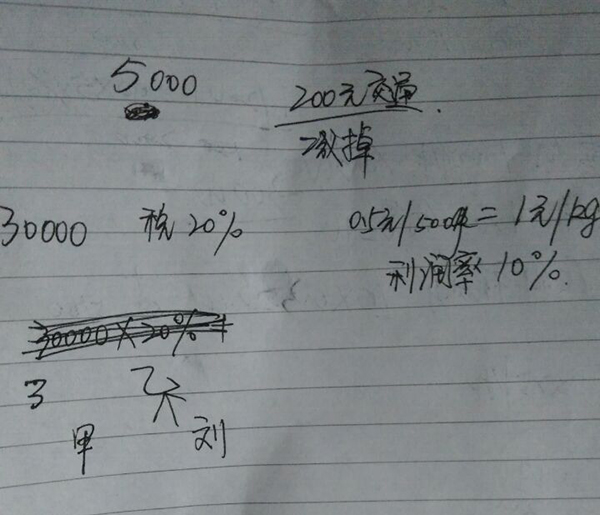 5000
200元交通
减掉
30000 税20%
0.5元/500g=1元/kg
利润率10%.
30000×20%+
3
甲 刘